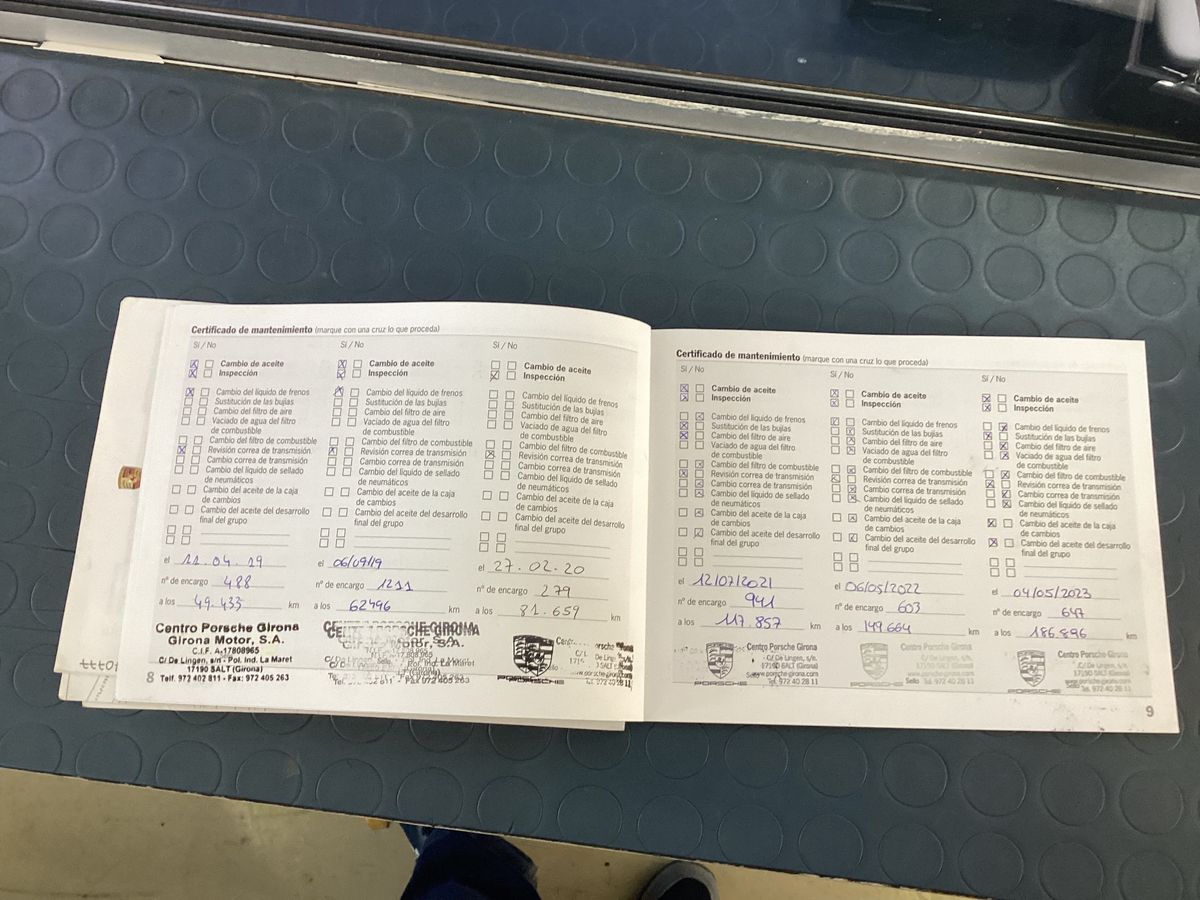 Certificado de mantenimiento (marque con una cruz lo que proceda)
Sí / No
Cambio de aceite
Inspección
Cambio del líquido de frenos
Sustitución de las bujías
Cambio del filtro de aire
Vaciado de agua del filtro
de combustible
Cambio del filtro de combustible
Revisión correa de transmisión
Cambio correa de transmisión
Cambio del líquido de sellado
de neumáticos
Cambio del aceite de la caja
de cambios
Cambio del aceite del desarrollo
final del grupo
el 11.04.19
nº de encargo 488
a los 49.433 km
Centro Porsche Girona
Girona Motor, S.A.
C.I.F. A-17808965
C/ De Lingen, s/n - Pol. Ind. La Maret
17190 SALT (Girona)
Telf. 972 402 811 - Fax: 972 405 263
8
Sí / No
Cambio de aceite
Inspección
Cambio del líquido de frenos
Sustitución de las bujías
Cambio del filtro de aire
Vaciado de agua del filtro
de combustible
Cambio del filtro de combustible
Revisión correa de transmisión
Cambio correa de transmisión
Cambio del líquido de sellado
de neumáticos
Cambio del aceite de la caja
de cambios
Cambio del aceite del desarrollo
final del grupo
el 06/09/19
nº de encargo 1211
a los 62496 km
Sí / No
Cambio de aceite
Inspección
Cambio del líquido de frenos
Sustitución de las bujías
Cambio del filtro de aire
Vaciado de agua del filtro
de combustible
Cambio del filtro de combustible
Revisión correa de transmisión
Cambio correa de transmisión
Cambio del líquido de sellado
de neumáticos
Cambio del aceite de la caja
de cambios
Cambio del aceite del desarrollo
final del grupo
el 27.02.20
nº de encargo 279
a los 81.659 km
PORSCHE
Certificado de mantenimiento (marque con una cruz lo que proceda)
Sí / No
Cambio de aceite
Inspección
Cambio del líquido de frenos
Sustitución de las bujías
Cambio del filtro de aire
Vaciado de agua del filtro
de combustible
Cambio del filtro de combustible
Revisión correa de transmisión
Cambio correa de transmisión
Cambio del líquido de sellado
de neumáticos
Cambio del aceite de la caja
de cambios
Cambio del aceite del desarrollo
final del grupo
el 12/07/2021
nº de encargo 941
a los 117.857 km
Centro Porsche Girona
C/ De Lingen, s/n.
17190 SALT (Girona)
www.porsche-girona.com
Tel. 972 40 28 11
PORSCHE
Sí / No
Cambio de aceite
Inspección
Cambio del líquido de frenos
Sustitución de las bujías
Cambio del filtro de aire
Vaciado de agua del filtro
de combustible
Cambio del filtro de combustible
Revisión correa de transmisión
Cambio correa de transmisión
Cambio del líquido de sellado
de neumáticos
Cambio del aceite de la caja
de cambios
Cambio del aceite del desarrollo
final del grupo
el 06/05/2022
nº de encargo 603
a los 149.664 km
Centro Porsche Girona
C/ De Lingen, s/n.
17190 SALT (Girona)
www.porsche-girona.com
Sello Tel. 972 40 28 11
PORSCHE
Sí / No
Cambio de aceite
Inspección
Cambio del líquido de frenos
Sustitución de las bujías
Cambio del filtro de aire
Vaciado de agua del filtro
de combustible
Cambio del filtro de combustible
Revisión correa de transmisión
Cambio correa de transmisión
Cambio del líquido de sellado
de neumáticos
Cambio del aceite de la caja
de cambios
Cambio del aceite del desarrollo
final del grupo
el 04/05/2023
nº de encargo 647
a los 186.896 km
Centro Porsche Girona
C/ De Lingen, s/n.
17190 SALT (Girona)
www.porsche-girona.com
Sello Tel. 972 40 28 11
PORSCHE
9